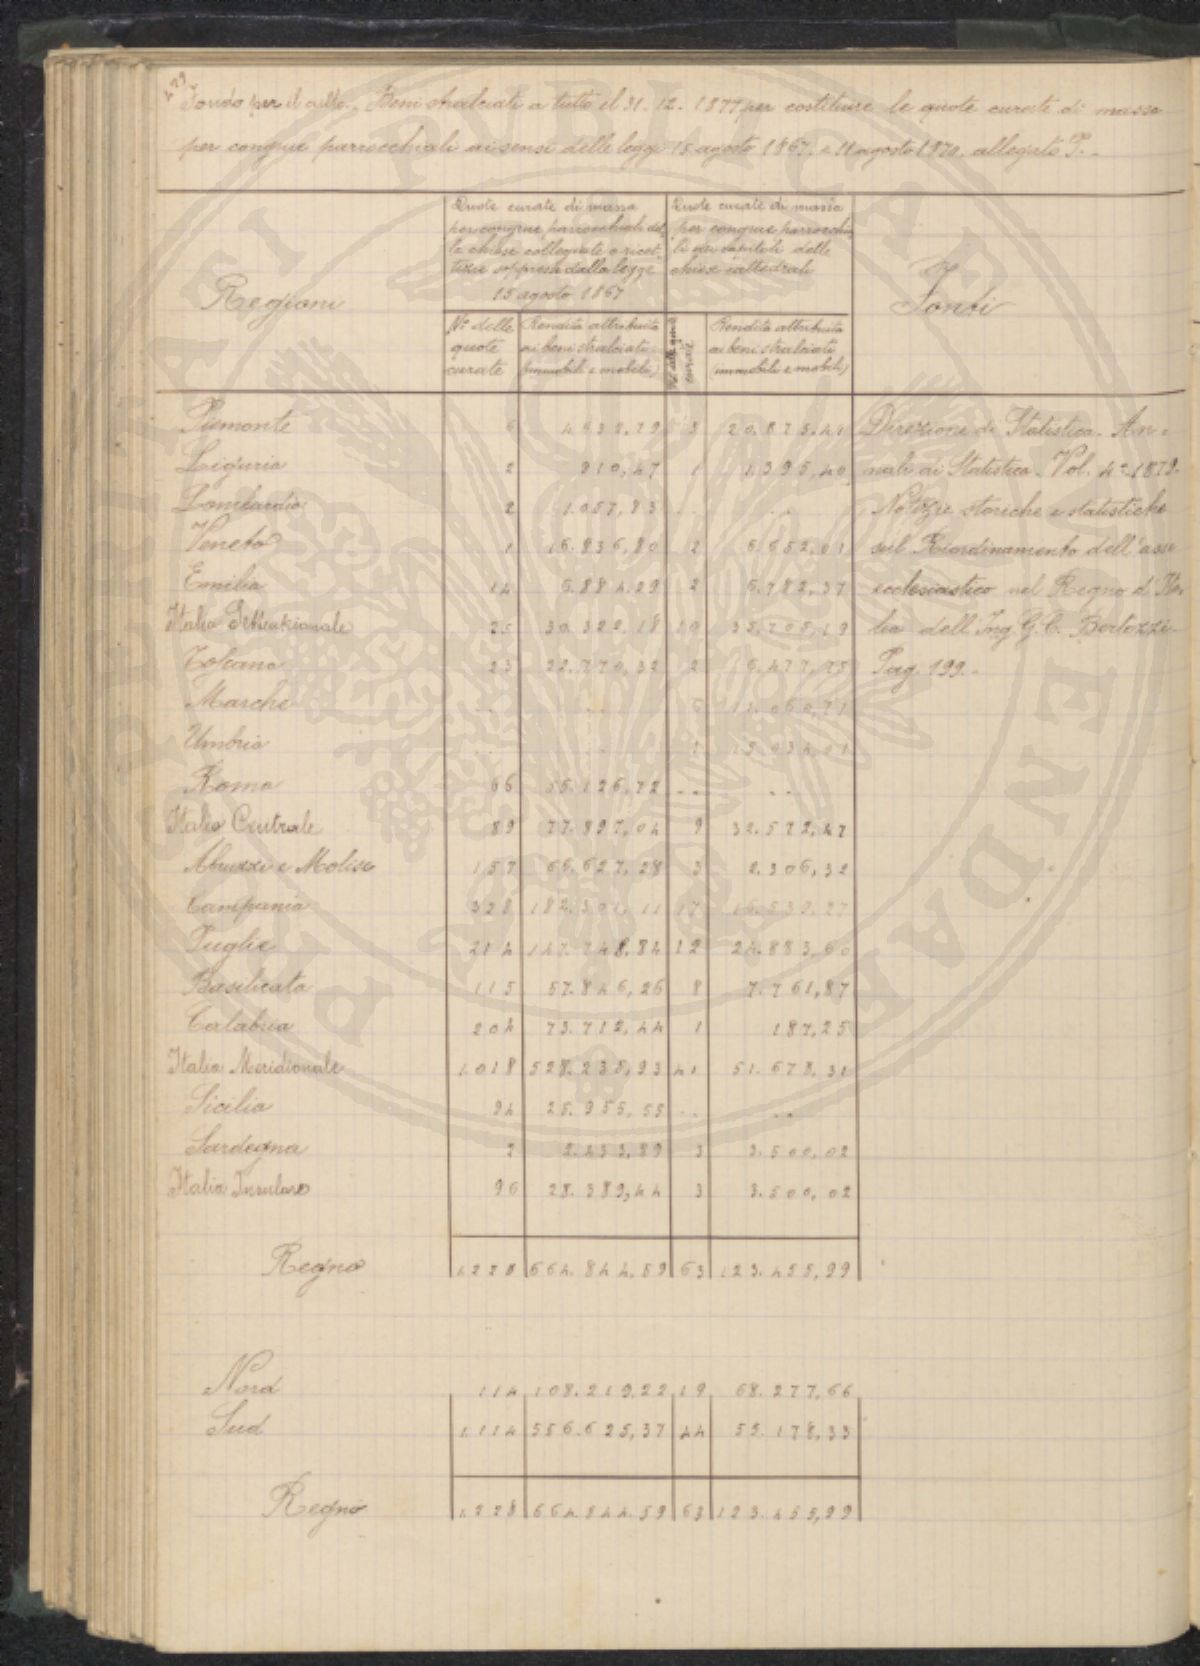 429
Fondo per il culto. Beni stralciati a tutto il 31. 12. 1877 per costituire le quote curate di massa
per congrue parrocchiali ai sensi delle leggi 15 agosto 1867, e 11 agosto 1870, allegato P.
Regioni
Quote curate di massa
per congrue parrocchiali del-
le chiese collegiate o ricet-
tizie soppresse dalla legge
15 agosto 1867
Quote curate di massa
per congrue parrocchia
li dei capitoli delle
chiese cattedrali
Fonti
N° delle
quote
curate
Rendita attribuita
ai beni stralciati
(immobili e mobili)
N° delle quote
curate
Rendita attribuita
ai beni stralciati
(immobili e mobili)
Piemonte 6 4632,79 3 20.875,41 Direzione di Statistica. An=
Liguria 2 910,47 1 1.395,40 nali di Statistica. Vol. 4° 1879.
Lombardia 2 1.057,83 .. .. Notizie storiche e statistiche
Veneto 1 16.836,80 2 6.652,01 sul Riordinamento dell'asse
Emilia 14 6.884,29 2 6.782,37 ecclesiastico nel Regno d'Ita-
Italia Settentrionale 25 30.322,18 10 35.705,19 lia dell'Ing. G. C. Bertozzi
Toscana 23 22.770,32 2 6.477,75 Pag. 199.
Marche .. .. 6 11.060,71
Umbria .. .. 1 15.034,01
Roma 66 55.126,72 .. ..
Italia Centrale 89 77.897,04 9 32.572,47
Abruzzi e Molise 157 66.627,28 3 2.306,32
Campania 328 182.301,11 17 16.539,27
Puglie 214 147.748,84 12 24.883,60
Basilicata 115 57.846,26 8 7.761,87
Calabria 204 73.712,44 1 187,25
Italia Meridionale 1.018 528.235,93 41 51.678,31
Sicilia 94 25.955,55 .. ..
Sardegna 2 2.433,89 3 3.500,02
Italia Insulare 96 28.389,44 3 3.500,02
Regno 1.228 664.844,59 63 123.455,99
Nord 114 108.219,22 19 68.277,66
Sud 1.114 556.625,37 44 55.178,33
Regno 1.228 664.844,59 63 123.455,99